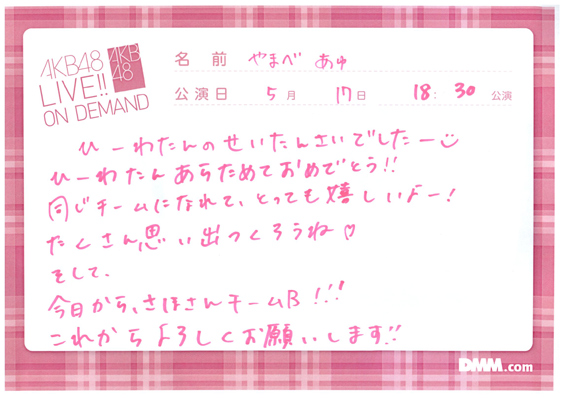 AKB48
LIVE!!
ON DEMAND
AKB
48
名前 やまべ あゆ
公演日 5月 17日 18:30 公演
ひーわたんのせいたんさいでしたー
ひーわたんあらためておめでとう!!
同じチームになれて、とっても嬉しいよー!
たくさん思い出つくろうね♡
そして、
今日から、さほさんチームB!!!
これからよろしくお願いします!!
DMM.com